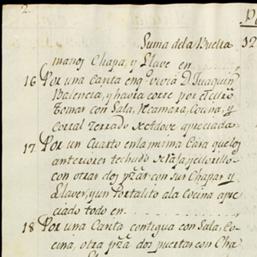 2.
Suma de la Buelta 12
manos Chapa, y Llave en
16 Por una Casita en q.e vivia D.n Juaquin
Balencia, y havia corre por el
tomar con Sala, Recamara, Cocina, y
Corral Zerrado apreciada
17 Por un Cuarto en la misma Casa que los
anteriores techado de Tajamanillo
con otras dos pzas con sus Chapas y
Llaves, y un Portalito a la Cocina apre
ciado todo en
18 Por una Casita contigua con Sala, Co
cina, otra pza dos puertas con Cha